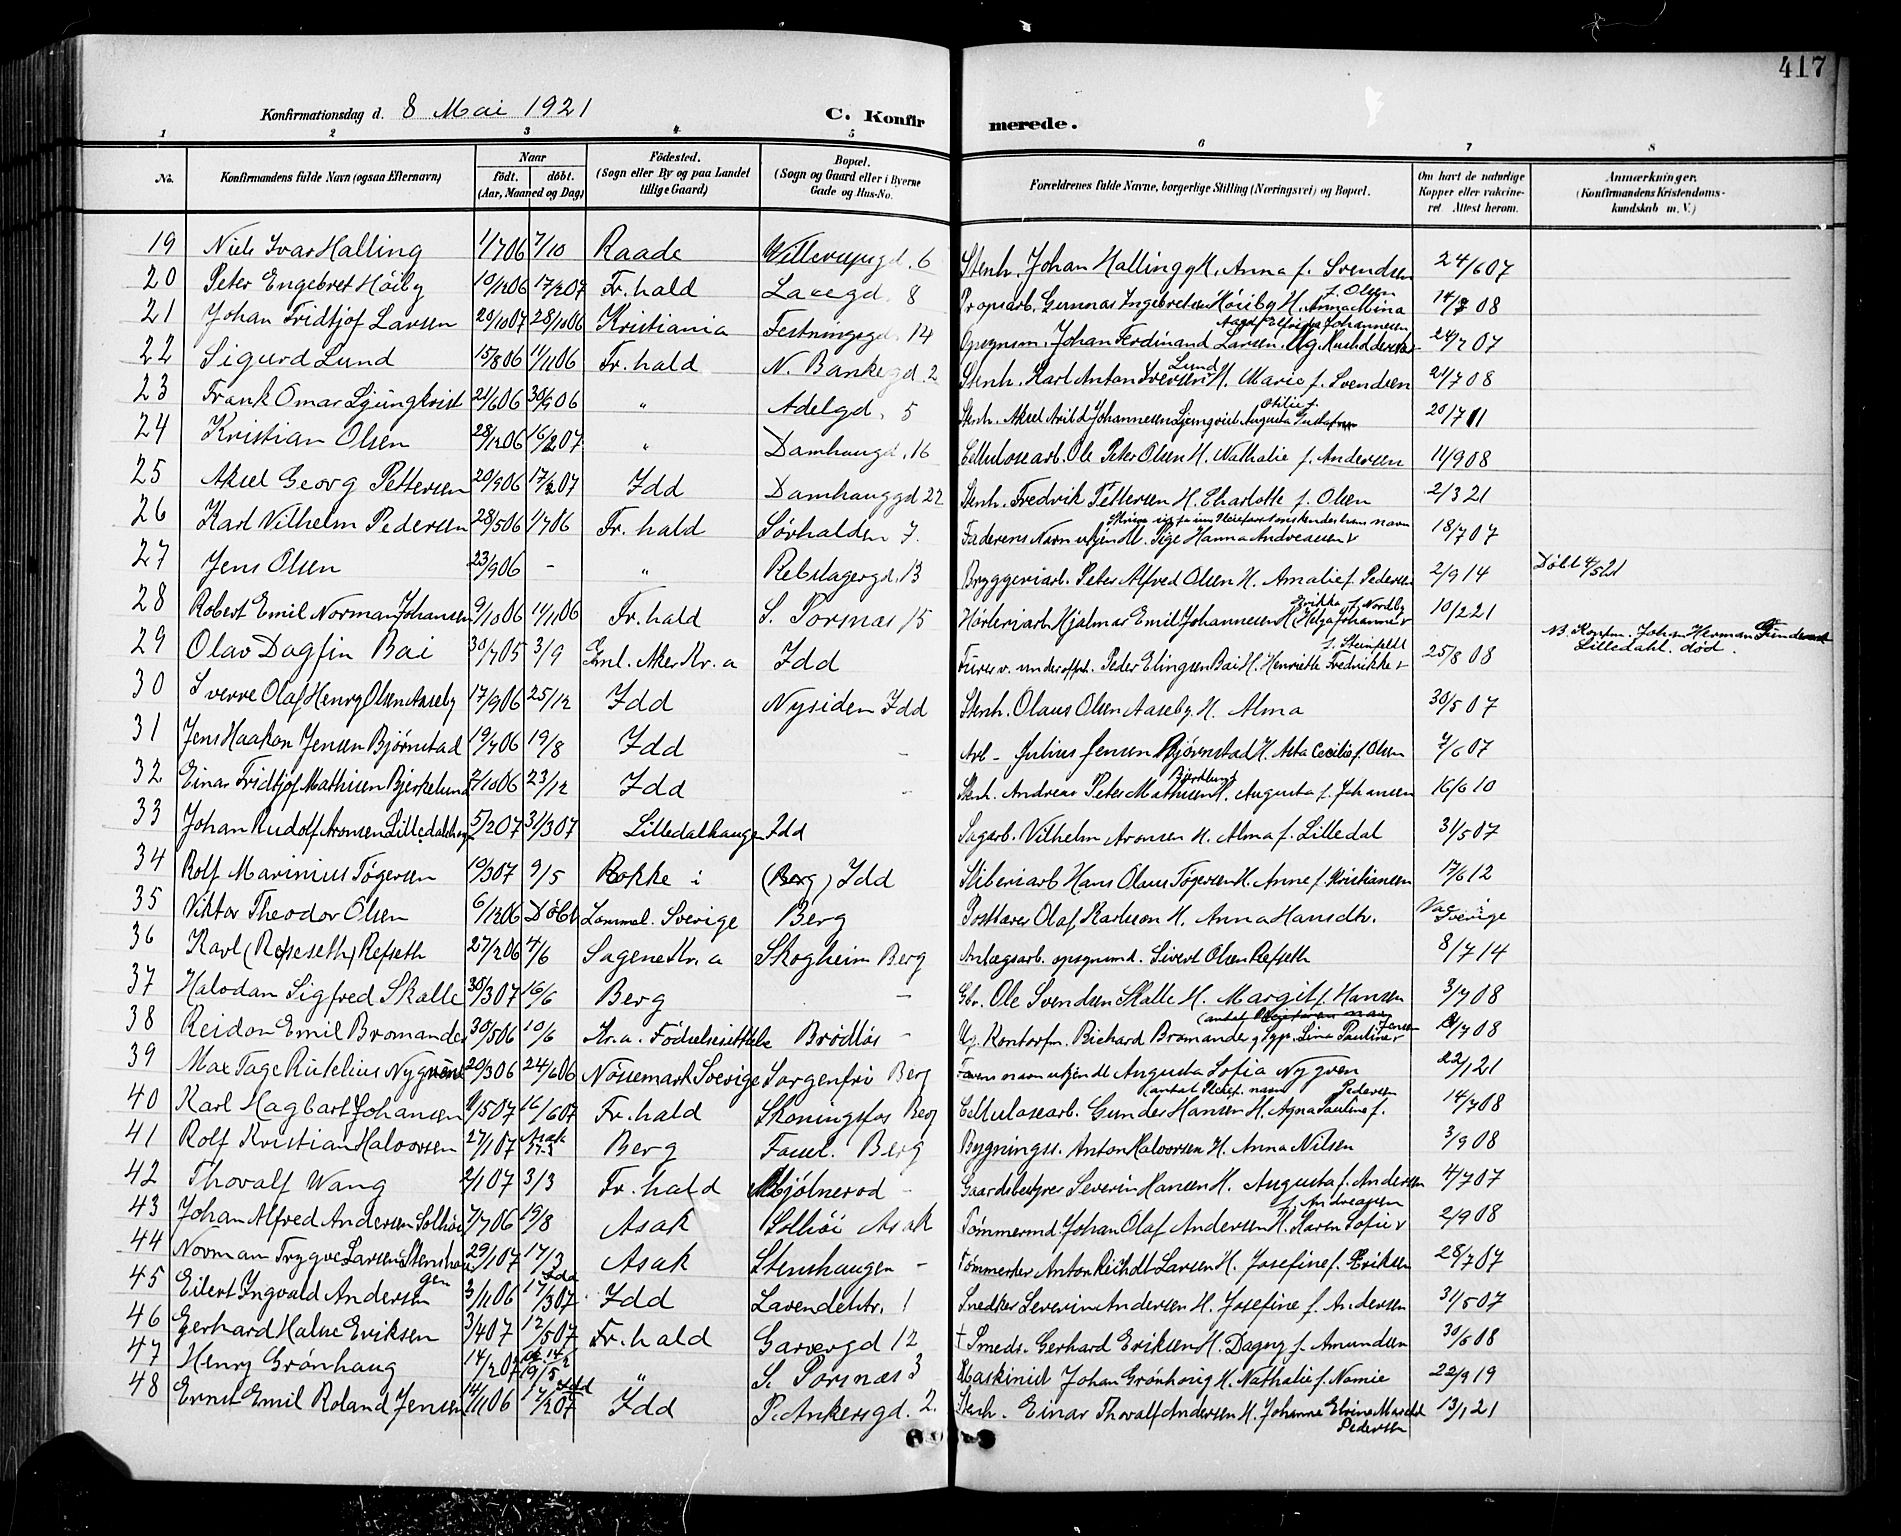 417
Konfirmationsdag d. 8 Mai 1921 C. Konfirmerede.
1 2 3 4 5 6 7 8
No. Konfirmandens fulde Navn (ogsaa Efternavn) Naar født. døbt. (Aar, Maaned og Dag) Fødested. (Sogn eller By og paa Landet tillige Gaard) Bopæl. (Sogn og Gaard eller i Byerne Gade og Hus-No. Forældrenes fulde Navne, borgerlige Stilling (Næringsvei) og Bopæl. Om havt de naturlige Kopper eller vaccineret. Attest herom. Anmærkninger. (Konfirmandens Kristendomskundskab m. V.)
19 Niels Ivar Halling 1/7 06 7/10 Raade 6 Stenh. Johan Halling H. Anna f. Svendsen 24/6 07
20 Peter Engebret Høiby 17/2 07 Fr.hald 8 Høiby H. Anna Mina f. Olsen
21 Johan Fridtjof Larsen 28/10 06 Kristiania Festningsgd. 14 Johan Ferdinand Larsen 24/7 07
22 Sigurd Lund 15/8 06 11/11 06 Fr.hald N. Bankegd 2 Stenh. Karl Anton Iversen Lund H. Marie f. Svendsen 21/7 08
23 Frank Omar Ljungkvist 21/6 06 30/9 06 " Adelgd. 5 Stenh. Aksel Arild Johannesen Ljungqvist Augusta Otilie f. 20/7 11
24 Kristian Olsen 28/12 06 16/2 07 " Damhaugd. 16 Cellulosearb. Ole Peter Olsen H. Nathalie f. Andersen 11/9 08
25 Aksel Georg Pettersen 20/9 06 17/2 07 Idd Damhauggd 22 Stenh. Fredrik Pettersen H. Charlotte f. Olsen 2/3 21
26 Karl Vilhelm Pedersen 28/5 06 1/7 06 Fr.hald Sørhalden 7. Faderens Navn ukjendt. Pige Hanna Andreasen 18/7 07
27 Jens Olsen 23/9 06 - " Rebslagergd. 13 Bryggeriarb. Peter Alfred Olsen H. Amalie f. Pedersen 2/9 14 Døbt 4/5 21
28 Robert Emil Norman Johansen 9/10 06 11/11 06 Fr.hald S. Porsnæs 15 Hjalmar Emil Johannesen H. Helga Johanne f. Nordby 10/2 21
29 Olav Dagfin Bai 30/7 05 3/9 Aker Kr.a Idd Furer v. underoffsk. Peder Elingsen Bai H. Henriette Fredrikke f. Steinfeldt 25/8 08 NB. Konfm. Johan Herman Lilledahl. død.
30 Sverre Olaf Henry Olsen Aaseby 17/9 06 25/12 Idd Nysiden Idd Stenh. Olaus Olsen Aaseby. H. Alma 30/5 07
31 Jens Haakon Jensen Bjørnstad 19/7 06 19/8 Idd - Arb - Julius Jensen Bjørnstad H. Asta Cecilie f. Olsen 7/6 07
32 Einar Fridtjof Mathisen Bjerkelund 7/10 06 23/12 Idd - Stenh. Andreas Peter Mathisen H. Augusta f. Johansen 16/6 10
33 Johan Rudolf Aronsen Lilledalshaugen 5/2 07 31/3 07 Lilledalhaugen Idd Sagarb. Vilhelm Aronsen H. Alma f. Lilledal 31/5 07
34 Rolf Marinius Tøgersen 10/3 07 9/5 Rokke i (Berg) Idd Sliberiarb Hans Olaus Tøgersen H. Anne f. Kristiansen 17/6 12
35 Viktor Theodor Olsen 6/12 06 Døbt Sverige Berg Postbærer Olaf Karlsson H. Anna Hansdtr. Vac. i Sverige
36 Karl (Refseseth) Refseth 27/2 06 4/6 Sagene Kr.a Skogheim Berg Anlægsarb. opsynsmd. Sivert Olsen Refseth 8/7 14
37 Halvdan Sigfred Skalle 30/3 07 16/6 Berg - Gbr. Ole Svendsen Skalle H. Margit f. Hansen 3/7 08
38 Reidar Emil Bromander 30/5 06 10/6 Kr.a. Brødløs - Ug. Kontorfm. Richard Bromander g. Lina Pauline Jensen 7 08
39 Max Tage Rutelius Nygren 20/3 06 24/6 06 Nössemark Sverige Sorgenfri Berg Farens navn ukjendt Augusta Sofia Nygren 22/1 21
40 Karl Hagbart Johansen /5 07 16/6 07 Fr.hald Skoningsfos Berg Cellulosearb. Gunder Hansen H. Agna Pauline f. Pedersen 14/7 08
41 Rolf Kristian Halvorsen 27/1 07 Asak Berg Berg Bygningss. Anton Halvorsen H. Anna Nilsen 3/9 08
42 Thoralf Wang 2/1 07 3/3 Fr.hald Mjølnerød - Gaardsbestyrer Severin Hansen H. Augusta f. Andersen 4/7 07
43 Johan Alfred Andersen Solhøi 7/7 06 19/8 Asak Solhøi Asak Tømmermd. Johan Olaf Andersen H. Karen Sofie f. Andreassen 2/9 08
44 Norman Trygve Larsen Stenshaugen 29/1 07 17/3 Asak Stenshaugen - Anton Larsen H. Josefine f. Eriksen 28/7 07
45 Eilert Ingvald Andersen 3/11 06 17/3 07 Idd Idd Lavendelstr. 1 Snedker Severin Andersen H. Josefine f. Andersen 31/5 07
46 Gerhard Halne Eriksen 3/4 07 12/5 07 Fr.hald Garvergd 12 † Smeds. Gerhard Eriksen H. Dagny f. Amundsen 30/6 08
47 Henry Grønhaug 14/2 07 19/5 " S. Porsnæs 3 Maskinist Johan Grønhaug H. Nathalie f. Namie 22/9 19
48 Ernst Emil Roland Jensen 14/11 06 17/2 07 Idd Idd P. Ankersgd. 2. Stenh. Einar Thoralf Andersen H. Johanne Pedersen 13/1 21